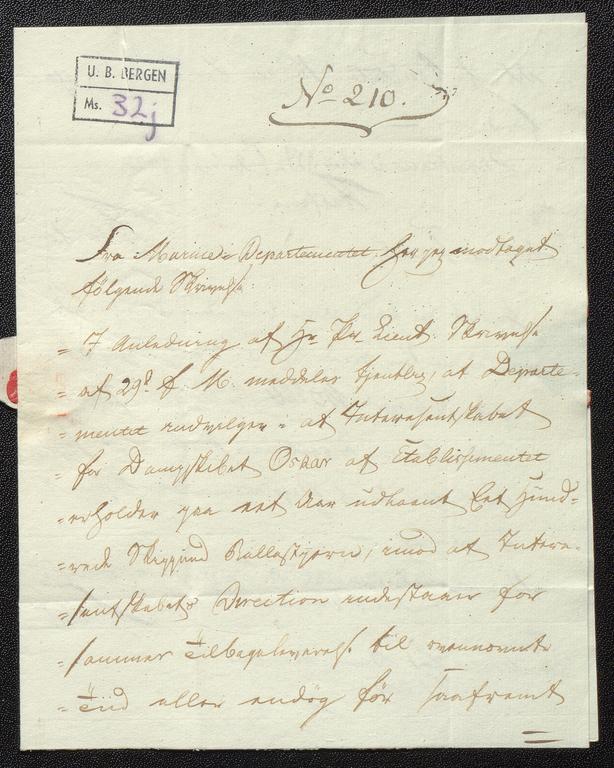 U. B. BERGEN
Ms. 32j
No 210.
Fra Marine-Departementet har jeg modtaget
følgende Skrivelse:
= I Anledning af Hr Pr Lieut. Skrivelse
= af 29d f. M. meddeles tjenstlig, at Departe-
= mentet indvilger i at Interessentskabet
= for Dampskibet Oscar af Etablissementet
= erholder paa eet Aar udlaant Eet Hund-
= rede Skippund Ballastjern, imod at Interes-
= sentskabets Direction indestaaer for
= sammes Tilbageleverelse til ovennævnte
= Tiid eller endog før saafremt